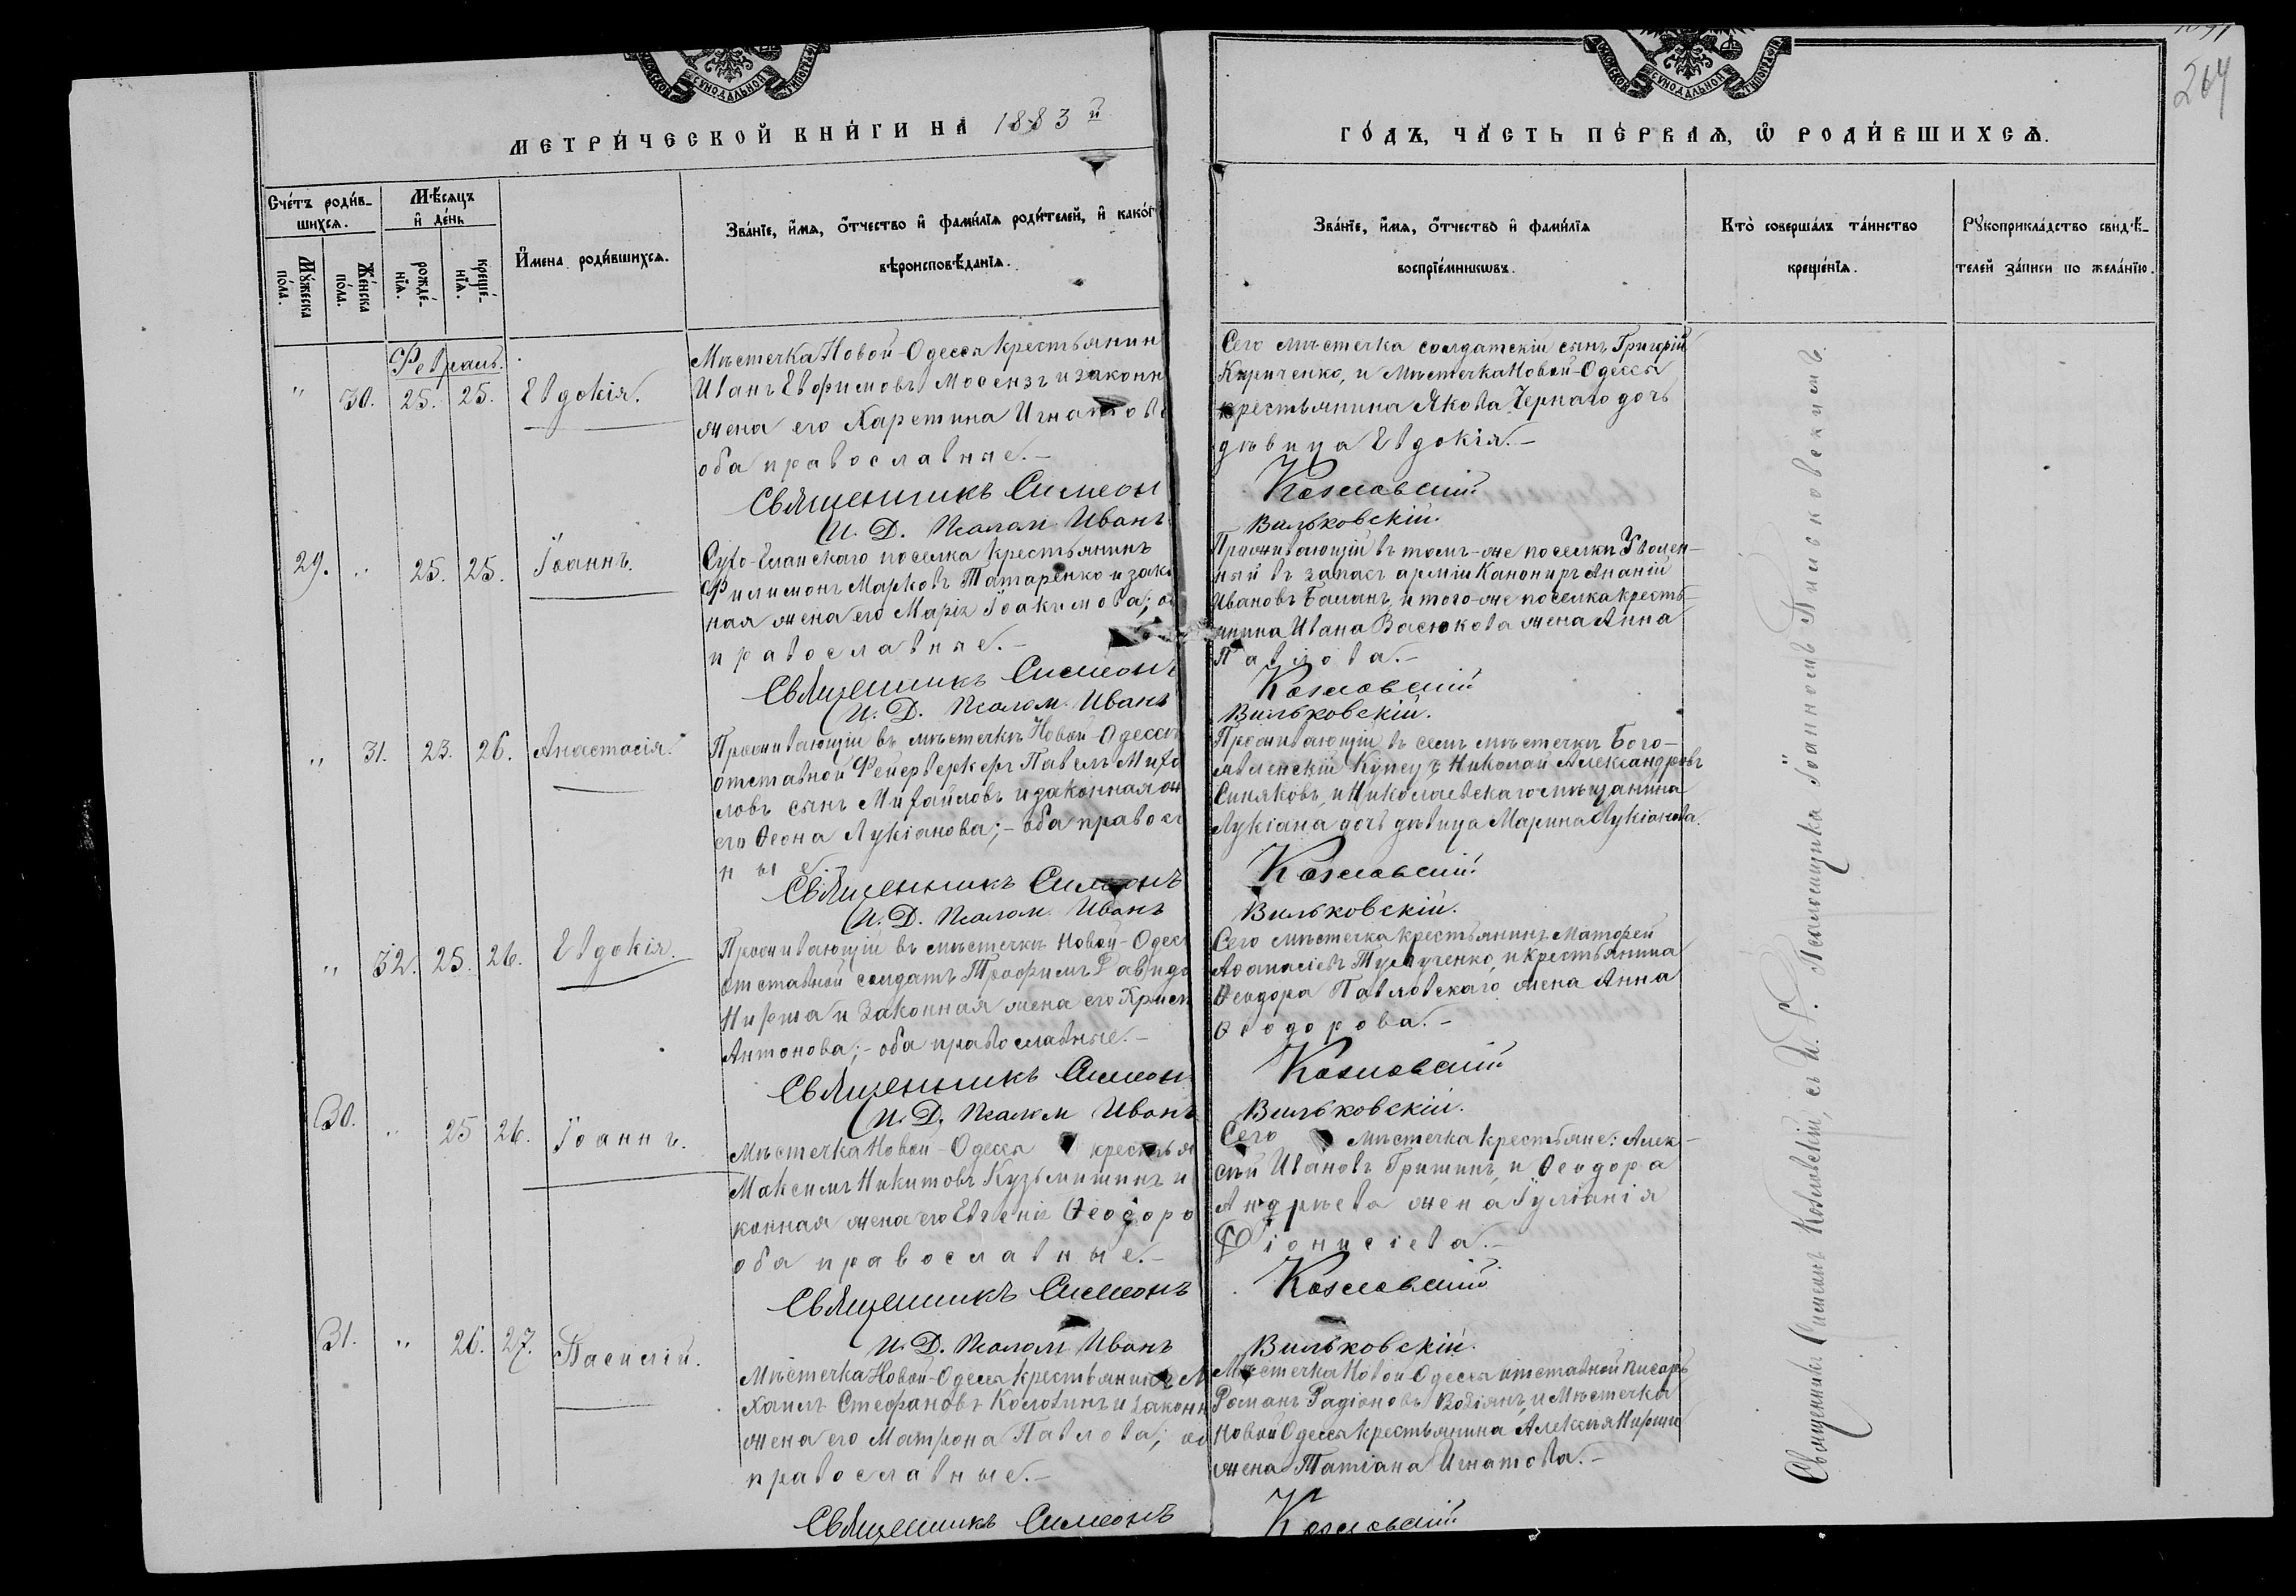 264
МОСКОВСКОЙ СУНОДАЛЬНОЙ ТИПОГРАФІИ
МЕТРИ́ЧЕСКОЙ КНИ́ГИ НА 1883й
ГО́ДЪ, ЧА́СТЬ ПЕ́РВАѦ, Ѡ РОДИ́ВШИХСѦ.
Сче́тъ роди́в-
шихсѧ.
Мѣ́сѧцъ
и де́нь
Мꙋ́жеска
по́ла.
Же́нска
по́ла.
рожде́-
нїѧ.
креще́-
нїѧ.
И҆мена роди́вшихсѧ.
Зва́нїе, и҆́мѧ, ѻ҆́тчество и҆ фами́лїѧ роди́телей, и҆ како́г
вѣроисповѣ́данїѧ.
Зва́нїе, и҆́мѧ, ѻ҆́тчество и҆ фами́лїѧ
воспрїе́мникѡвъ.
Кто̀ соверша́лъ та́инство
креще́нїѧ.
Рꙋкоприкла́дство свидѣ́-
телей за́писи по жела́нїю.
Февраль.
" 30. 25. 25. Евдокія.
Мѣстечка Новой-Одессы крестьянин
Иванъ Евфимовъ и законн
жена его Харетина Игнатов
оба православные.-
Священникъ Симеон
И. Д. Псалом. Иванъ
Сего мѣстечка солдатскій сынъ Григорій
Кириченко, и Мѣстечка Новой-Одессы
крестьянина Якова Чернаго дочь
дѣвица Евдокія.-
Козловскій
Вильковскій.
29. " 25. 25. Іоаннъ.
Сухо-Еланскаго поселка крестьянинъ
Филимонъ Марковъ Татаренко и зак
ная жена его Марія Іоакимова; о
православные.-
Священникъ Симеонъ
И. Д. Псалом. Иванъ
Проживающій въ томъ-же поселкѣ Уволен-
ный въ запасъ арміи Канониръ Ананій
Ивановъ Баланъ, и того-же поселка кресть-
янина Ивана Васюкова жена Анна
Павлова.-
Козловскій
Вильковскій.
" 31. 23. 26. Анастасія.
Проживающій въ мѣстечкѣ Новой-Одессѣ
отставной Фейерверкеръ Павелъ Михай
ловъ сынъ Михайловъ и законная ж
его Ѳеона Лукіанова;- оба правос
ные.
Священникъ Симеонъ
И. Д. Псалом. Иванъ
Проживающій въ семъ мѣстечкѣ Бого-
явленскій Купецъ Николай Александровъ
Синяковъ, и Николаевскаго мѣщанина
Лукіана дочь дѣвица Марина Лукіанова.
Козловскій
Вильковскій.
" 32. 25. 26. Евдокія.
Проживающій въ мѣстечкѣ Новой-Одес
отставной солдатъ Трофимъ Давидо
и законная жена его Христ
Антонова;- оба православные.-
Священникъ Симеон
И. Д. Псалом Иванъ
Сего мѣстечка крестьянинъ Матфей
Аѳанасіевъ и крестьянина
Ѳеодора Павловскаго жена Анна
Ѳеодорова.-
Козловскій
Вильковскій.
30. " 25 26. Іоаннъ.
Мѣстечка Новой-Одессы крестья
Максимъ Никитовъ Кузьмишинъ и
конная жена его Евгенія Ѳеодоро
оба православные.-
Священникъ Симеонъ
И. Д. Псалом Иванъ
Сего мѣстечка крестьяне: Алек-
сѣй Ивановъ Гришинъ, и Ѳеодора
Андрѣева жена Іуліанія
Діонисіева.-
Козловскій
Вильковскій.
31. " 26. 27. Василій.
Мѣстечка Новой-Одессы крестьянинъ М
хаилъ Стефановъ и законн
жена его Матрона Павлова; об
православные.-
Священникъ Симеонъ
Мѣстечка Новой-Одессы отставной писарь
Романъ Радіоновъ и Мѣстечка
Новой Одессы крестьянина Алексѣя
жена Татіана Игнатова.-
Козловскій
Священникъ Симеонъ Козловскій, съ И. Д. Псаломщика Іоанномъ Вильковскимъ.